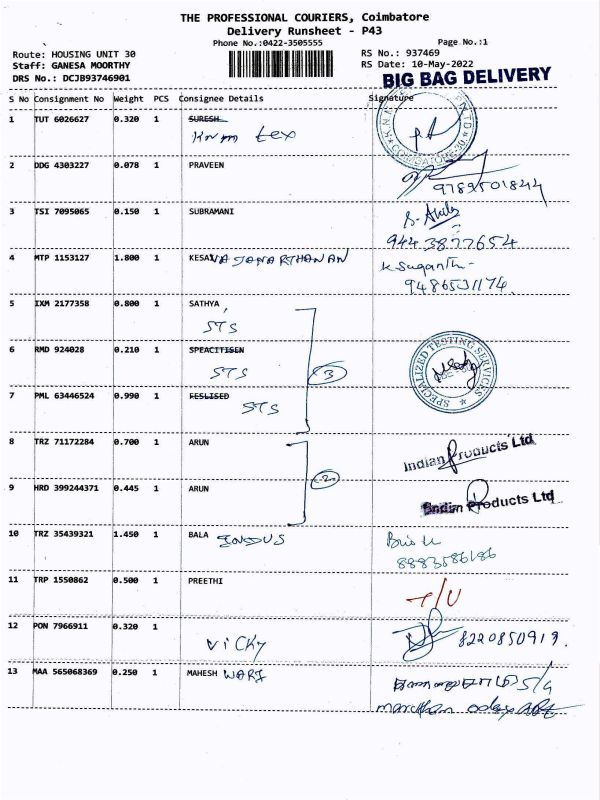 THE PROFESSIONAL COURIERS, Coimbatore
Delivery Runsheet - P43
Phone No.:0422-3505555 Page No.:1
Route: HOUSING UNIT 30 RS No.: 937469
Staff: GANESA MOORTHY RS Date: 10-May-2022
DRS No.: DCJB93746901
BIG BAG DELIVERY
S No Consignment No Weight PCS Consignee Details Signature
1 TUT 6026627 0.320 1 SURESH
Knm tex
2 DDG 4303227 0.078 1 PRAVEEN
9789501844
3 TSI 7095065 0.150 1 SUBRAMANI
9443877654
4 MTP 1153127 1.800 1 KESAVA JANARTHANAN K Suganthi
9486531174
5 IXM 2177358 0.800 1 SATHYA
STS
6 RMD 924028 0.210 1 SPEACITISEN
STS 3 SPECIALIZED TESTING SERVICES
7 PML 63446524 0.990 1
STS
8 TRZ 71172284 0.700 1 ARUN Indian Products Ltd
9 HRD 399244371 0.445 1 ARUN Indian Products Ltd
10 TRZ 35439321 1.450 1 BALA INDUS
8883586186
11 TRP 1550862 0.500 1 PREETHI
12 PON 7966911 0.320 1
VICKY 8220850919.
13 MAA 565068369 0.250 1 MAHESH WARI